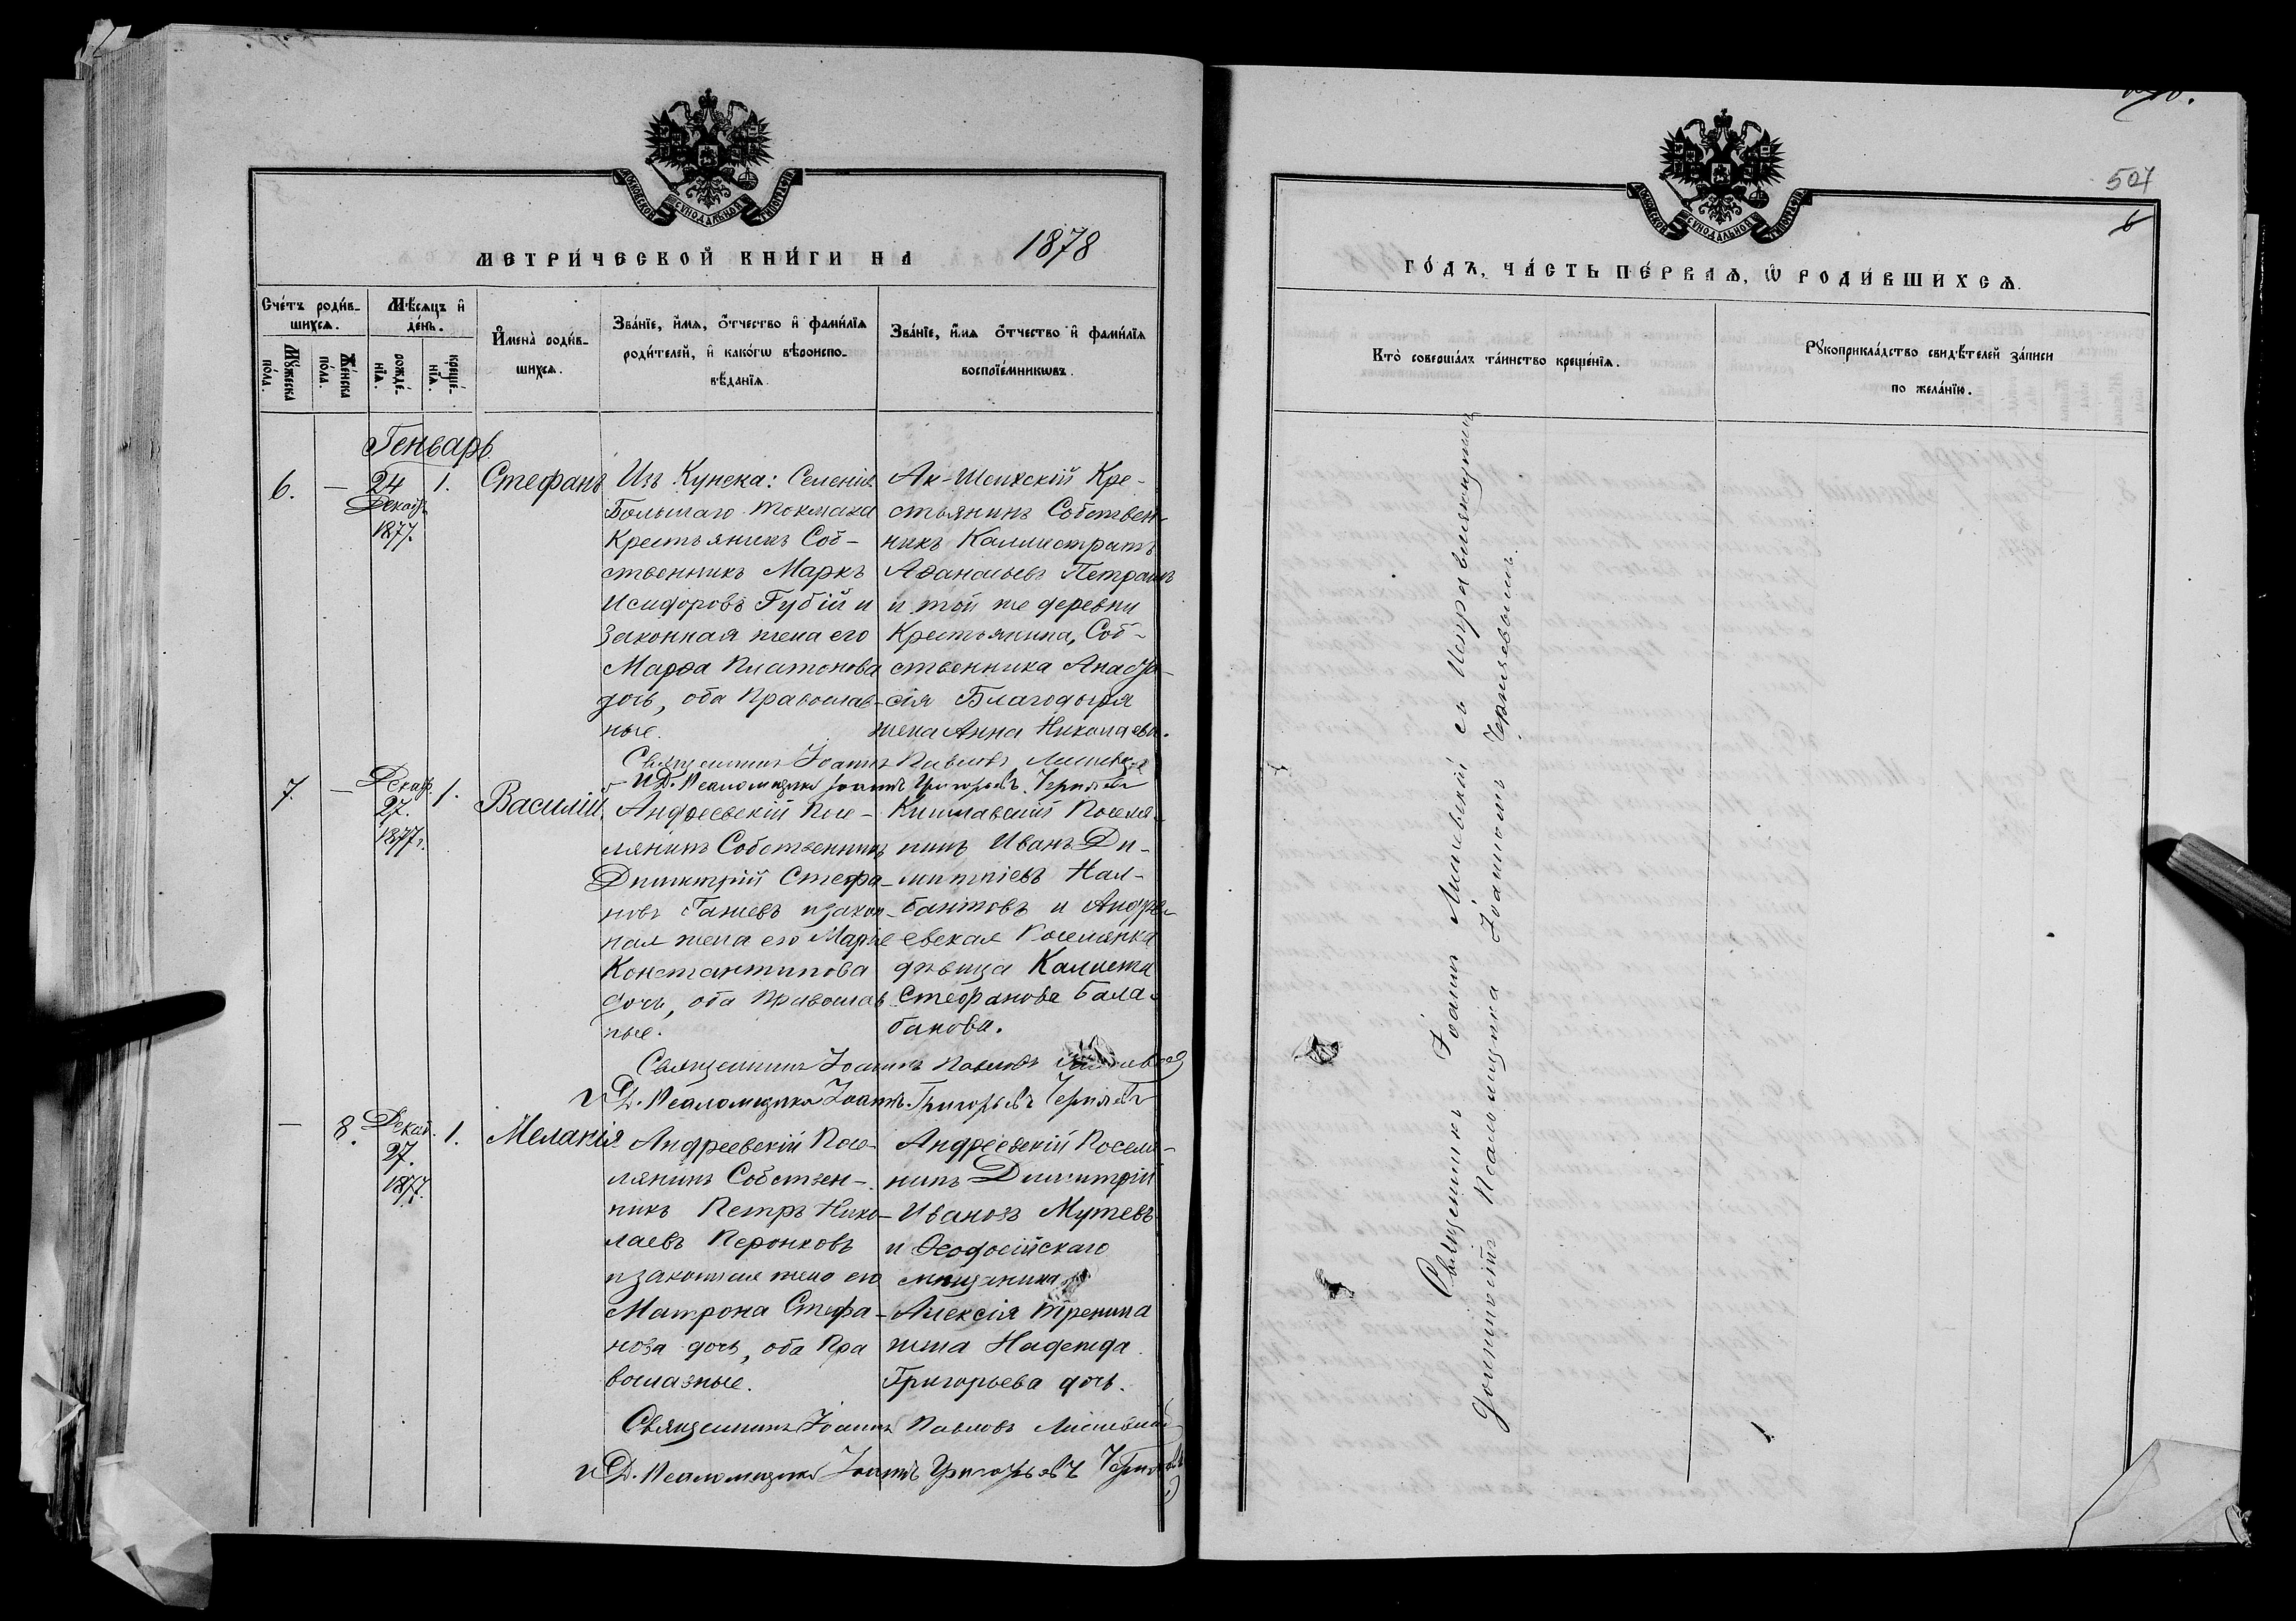 МОСКОВСКОЙ СѴНОДАЛЬНОЙ ТИПОГРАФІИ
МЕТРИ́ЧЕСКОЙ КНИ́ГИ НА 1878
Сче́тъ роди́в-
шихсѧ.
Мꙋ́жеска по́ла.
Же́нска по́ла.
Мѣ́сѧцъ и҆ де́нь.
рожде́-
нїѧ.
креще́-
нїѧ.
И҆мена̀ роди́в-
шихсѧ.
Зва́нїе, и҆́мѧ, ѻ҆́тчество и҆ фами́лїѧ
роди́телей, и҆ како́гѡ вѣроиспо-
вѣ́данїѧ.
Зва́нїе, и҆́мѧ ѻ҆́тчество и҆ фами́лїѧ
воспрїе́мникѡвъ.
Генварь
6. — 24 Декабр. 1877. 1. Стефанъ
Изъ Кунска: Селенія
Большаго Токмака
Крестьянинъ Соб-
ственникъ Маркъ
Исидоровъ Губій и
законная жена его
Марѳа Платонова
дочь, оба Православ-
ные.
Ак-Шеихскій Кре-
стьянинъ Собствен-
никъ Каллистратъ
Аѳанасьевъ
и той же деревни
Крестьянина, Соб-
ственника Анаста-
сія
жена Анна Николаева.
Священникъ Іоаннъ Павловъ
И Д. Псаломщика Іоаннъ Григорьевъ
7. — Декаб. 27. 1877г. 1. Василій
Андреевскій Посе-
лянинъ Собственникъ
Димитрій Стефа-
новъ Ганевъ и закон-
ная жена его Марія
Константинова
дочь, оба Православ
ные.
Кишлавскій Поселя-
нинъ Иванъ Ди-
митріевъ Нал-
бантовъ и Андре-
евская Поселянка
дѣвица
Стефанова Бала-
банова.
Священникъ Іоаннъ Павловъ
и Д. Псаломщика Іоаннъ Григорьевъ
— 8. Декаб. 27. 1877. 1. Меланія
Андреевскій Посе-
лянинъ Собствен-
никъ Петръ Нико-
лаевъ Перонковъ
и законная жена его
Матрона Стефа-
нова дочь, оба Пра
вославные.
Андреевскій Поселя-
нинъ Димитрій
Ивановъ Мутевъ
и Ѳеодосійскаго
мѣщанина
Алексія Тренина
жена Надежда
Григорьева дочь.
Священникъ Іоаннъ Павловъ
и Д. Псаломщика Іоаннъ Григорьевъ
507
6
МОСКОВСКОЙ СѴНОДАЛЬНОЙ ТИПОГРАФІИ
ГО́ДЪ, ЧА́СТЬ ПЕ́РВАѦ, Ѡ҆ РОДИ́ВШИХСѦ.
Кто̀ соверша́лъ та́инство креще́нїѧ.
Рꙋкоприкла́дство свидѣ́телей за́писи
по жела́нїю.
Священникъ Іоаннъ съ Исправляющимъ
Должность Псаломщика Іоанномъ